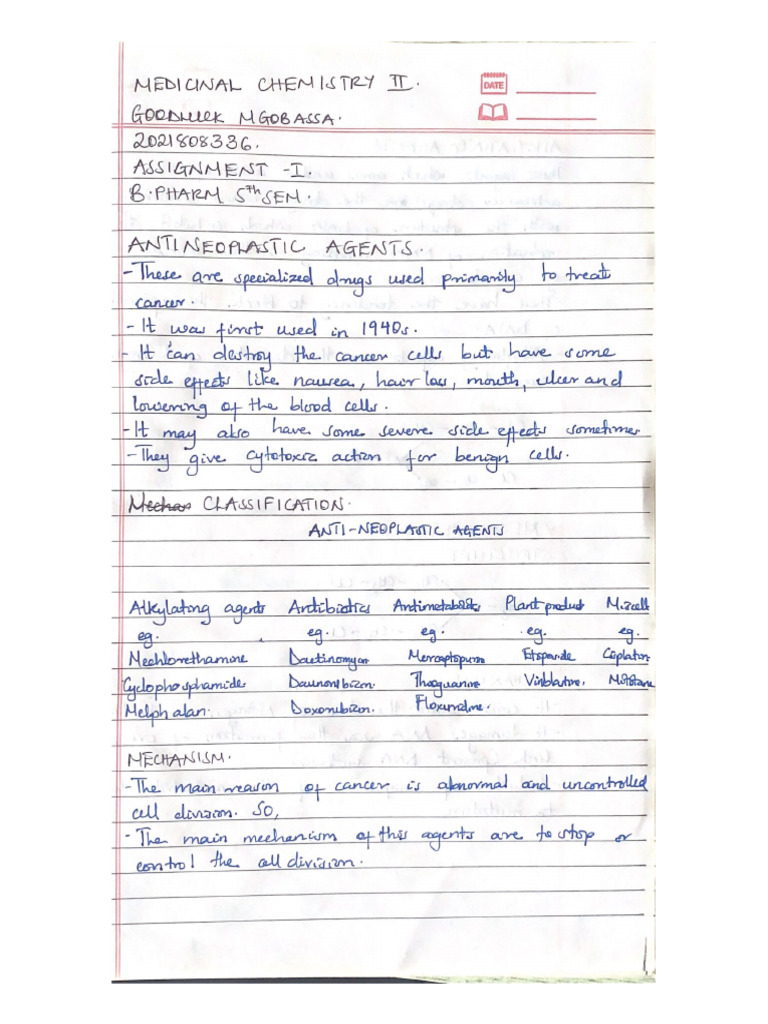 MEDICINAL CHEMISTRY II.
DATE
GOODLUCK MGOBASSA.
2021808336.
ASSIGNMENT -I.
B.PHARM 5th SEM.
ANTINEOPLASTIC AGENTS.
- These are specialized drugs used primarily to treat
cancer.
- It was first used in 1940s.
- It can destroy the cancer cells but have some
side effects like nausea, hair loss, mouth, ulcer and
lowering of the blood cells.
- It may also have some severe side effects sometimes
- They give cytotoxic action for benign cells.
Mechan CLASSIFICATION.
ANTI-NEOPLASTIC AGENTS
Alkylating agents Antibiotics Antimetabolites Plant product Miscell
eg. eg. eg. eg. eg.
Mechlorethamine Dactinomycin Mercaptopurin Etoposide Cisplatin
Cyclophosphamide Daunorubicin. Thioguanine Vinblastine. Mitotane
Melphalan. Doxorubicin. Floxuridine.
MECHANISM.
- The main reason of cancer is abnormal and uncontrolled
cell division. SO,
- The main mechanism of this agents are to stop or
control the cell division.